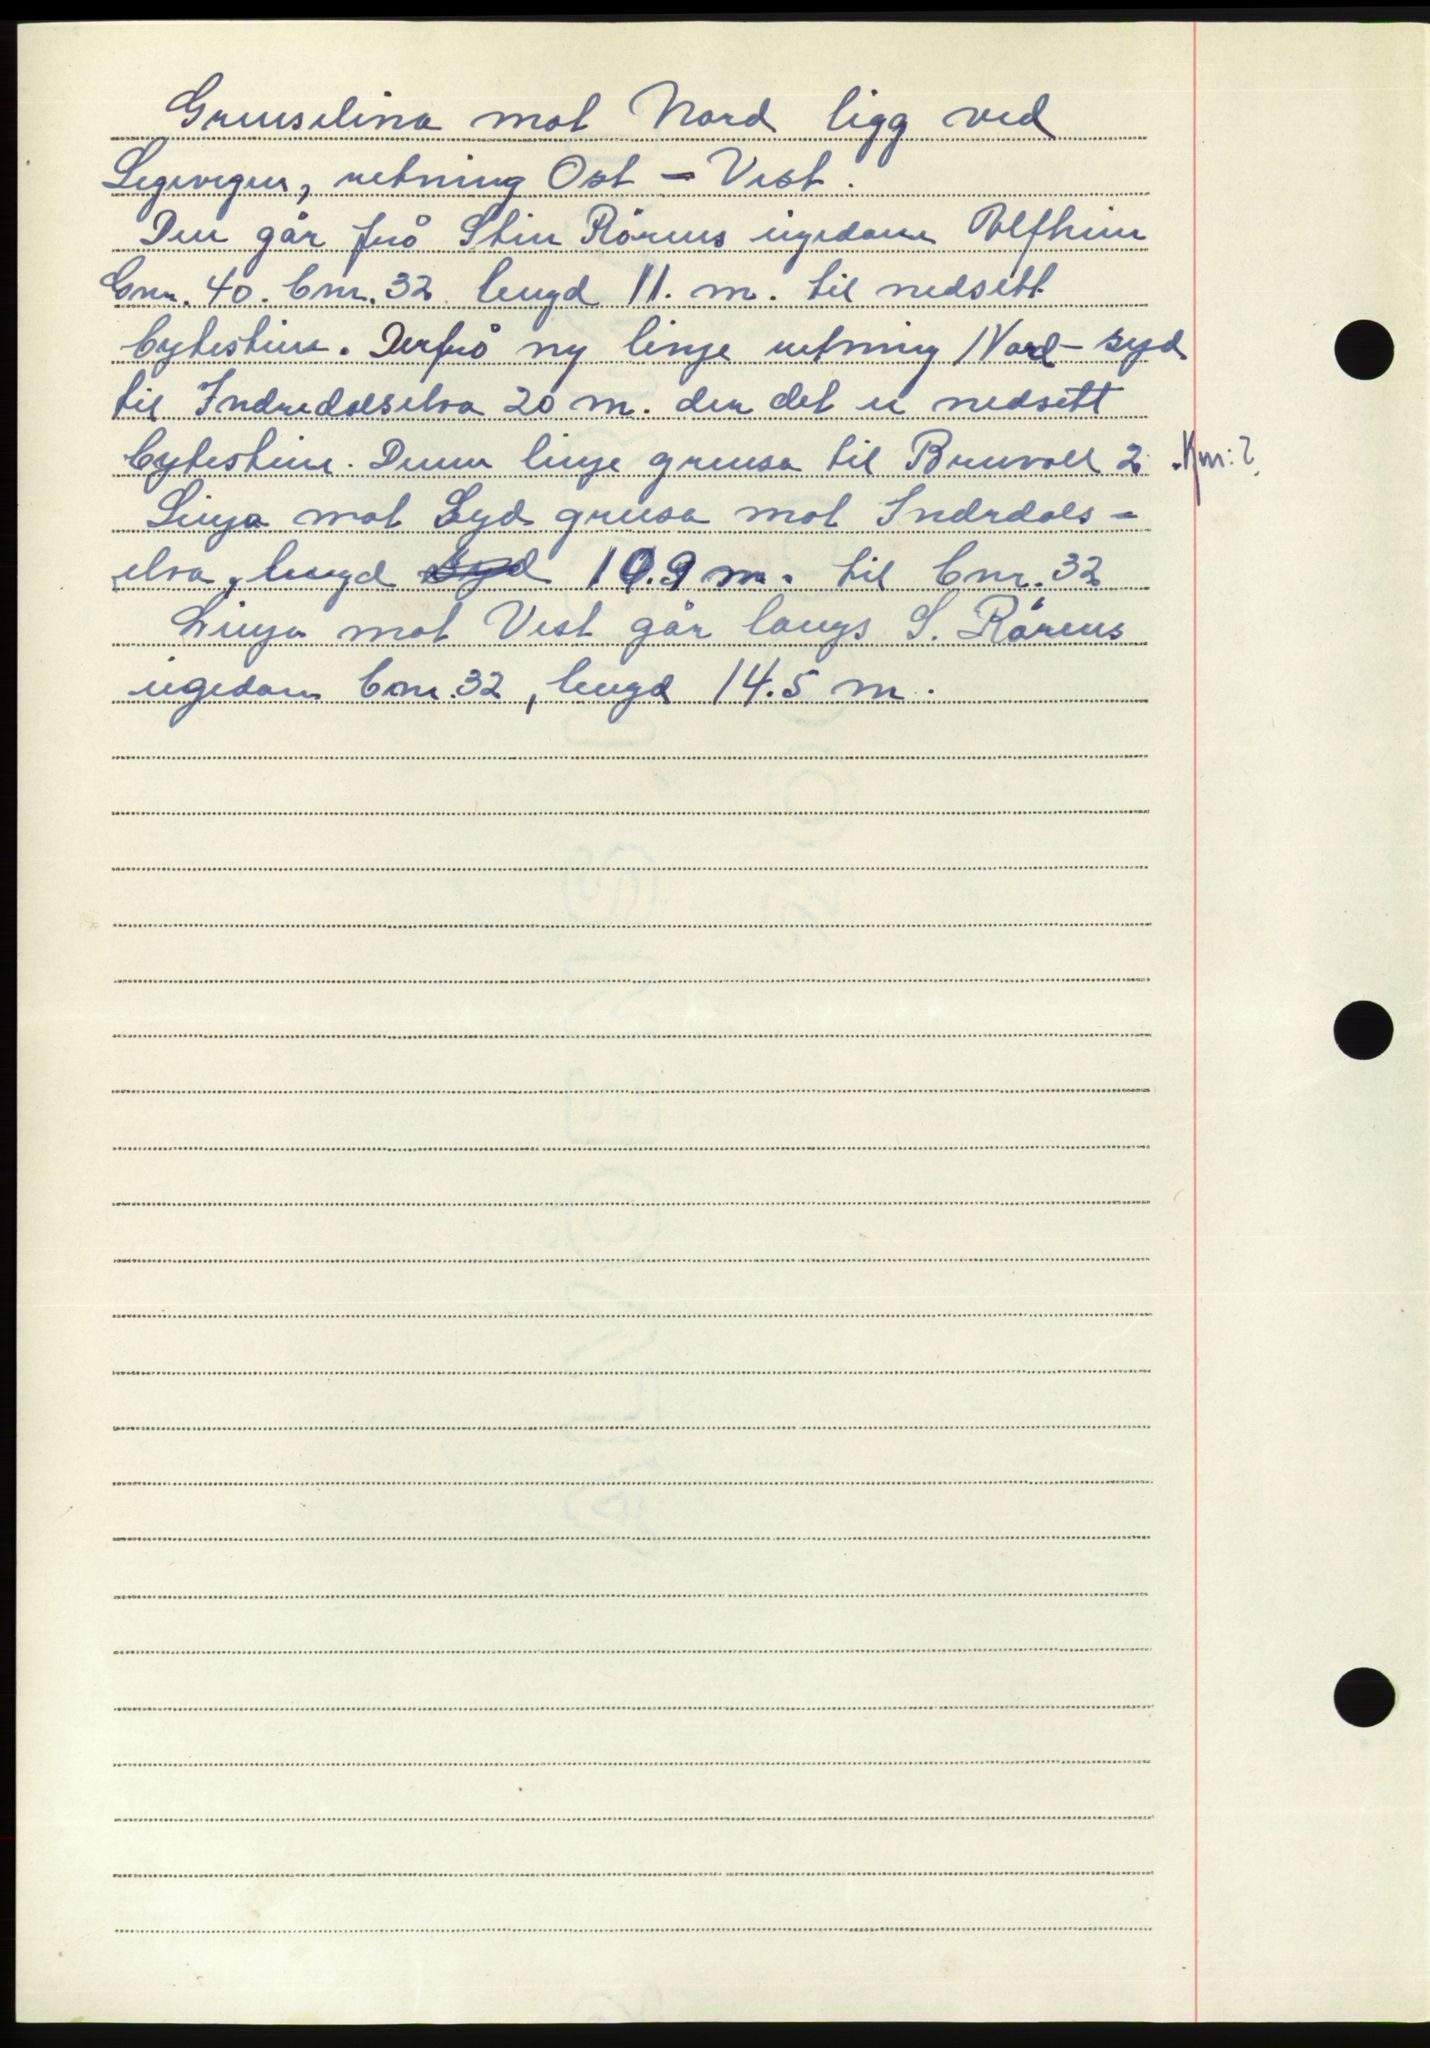 Grenselina mot Nord ligg ved
Legevegen, retning Ost - Vest.
Den går frå Stein Rörens eigedom Alfheim
Gnr. 40. Bnr. 32 lengd 11. m. til nedsett
bytestein. Derfrå ny linje retning Nord - syd
til Indredalselva 20 m. der det er nedsett
bytestein. Denne linje grensa til Bruvoll 2. Km: ?
Linja mot Syd grensa mot Indrdals-
elva, lengd 10.9 m. til bnr. 32
Linja mot Vest går langs S. Rörens
eigedom bnr. 32, lengd 14.5 m.